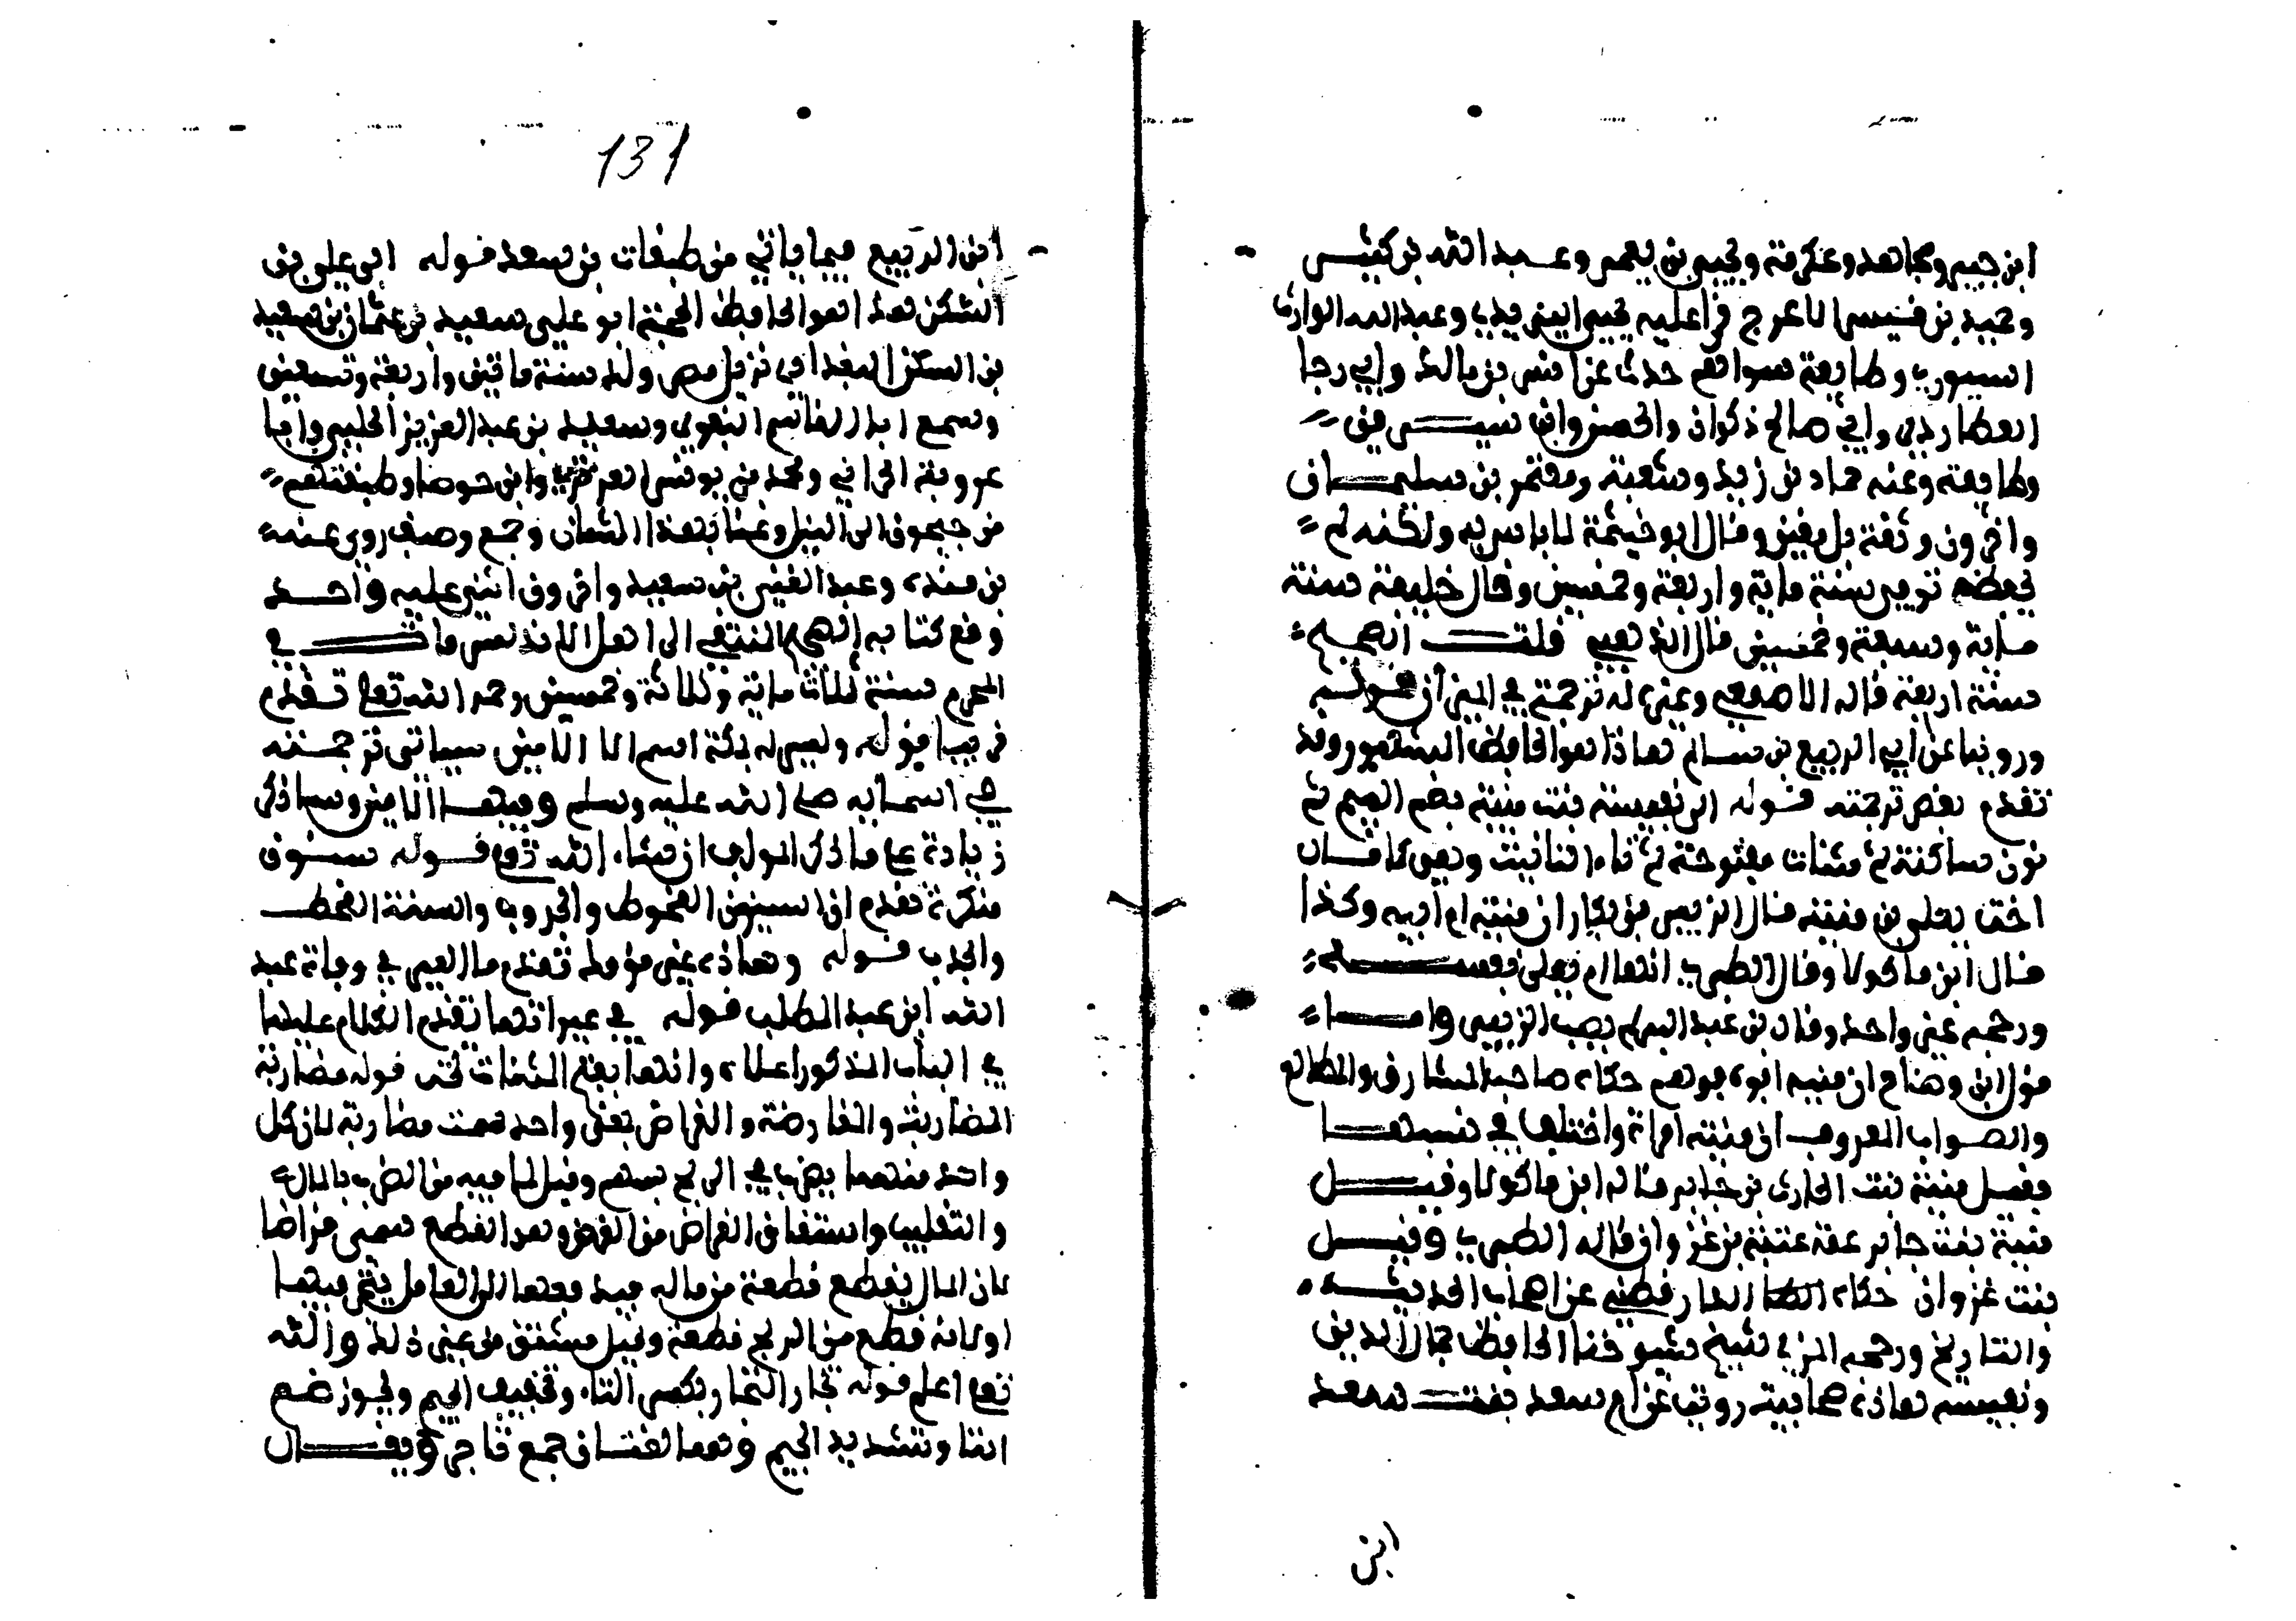 ابن جبير ومجاهد وعكرمة ويحيى بن يعمر وعبد الله بن كثير
وحميد بن قيس الاعرج قرا عليه يحيى اليزيدي وعبد الوارث
وطايفة سواهم حدث عن انس بن مالك وابي رجا
العطاردي وابي صالح ذكوان والحسن وابن سيرين
وطايفة وعنه حماد بن زيد وشعبة ومعتمر بن سليمان
واخرون وثقه بن معين وقال ابو خيثمة لا باس به ولكنه لم
يحفظ توفي سنة ماية واربعة وخمسين وقال خليفة سنة
ماية وسبعة وخمسين قال الذهبي قلت الصحيح
سنة اربعة قاله الاصمعي وغيره له ترجمة في الميزان قوله
وروينا عن ابي الربيع بن سالم هاذا هو الحافظ المشهور وقد
تقدم بعض ترجمته قوله ان نفيسة بنت منية بضم الميم ثم
نون ساكنة ثم مثنات مفتوحة ثم تاء التانيث وهي كما قال
اخت يعلى بن منية قال الزبير بن بكار ان منية ام ابيه وكذا
قال ابن ماكولا وقال الطبري انها ام يعلى نفسه
ورجحه غير واحد وقال بن عبد البر لم يصب الزبير واما
قول ابن وضاح ان منية ابوه فوهم حكاه صاحب المشارق والمطالع
والصواب المعروف ان منية امراة واختلف في نسبتها
فقيل منية بنت الحارث بن جابر قاله ابن ماكولا وقيل
منية بنت جابر عمة عتبة بن غزوان قاله الطبري وقيل
بنت غزوان حكاه الدارقطني عن اصحاب الحديث
والتاريخ ورجحه المزي شيخ شيوخنا الحافظ جمال الدين
ونفيسة هاذه صحابية روت عن ام سعد بنت سعد
ابن
131
ابن الربيع فيما ياتي من طبقات بن سعد قوله ابي علي بن
السكن هذا هو الحافظ الحجة ابو علي سعيد بن عثمان بن سعيد
بن السكن البغدادي نزيل مصر ولد سنة ماتين واربعة وتسعين
وسمع ابا القاسم البغوي وسعيد بن عبد العزيز الحلبي وابا
عروبة الحراني ومحمد بن يوسف الفربري وابن جوصا وطبقتهم
من جيحون الى النيل وعني بهذا الشان وجمع وصنف روى عنه
بن منده وعبد الغني بن سعيد واخرون اثنى عليه واحد
وقع كتابه الصحيح المنتقى الى اهل الاندلس مات في
المحرم سنة ثلاث ماية وثلاثة وخمسين رحمه الله تعا تقدم
قريبا قوله وليس له بمكة اسم الا الامين سياتي ترجمته
في اسمايه صلى الله عليه وسلم وفيها الامين وساذكر
زيادة على ما ذكر المولف ان شاء الله تع قوله سنون
منكرة تقدم ان السنين القحوط والجدوب والسنة القحط
والجدب قوله وهاذه عير قومك تقدم ما العير في وفاة عبد
الله ابن عبد المطلب قوله في عيراتها تقدم الكلام عليها
في الباب المذكور اعلاه وانها بفتح المثنات تحت قوله مضاربة
المضاربة والمقارضة والقراض بمعنى واحد سميت مضاربة لان كل
واحد منهما يضرب في الربح بسهم وقيل لما فيه من الضرب بالمال
والتقليب واشتقاق القراض من القرض وهو القطع سمي قراضا
لان المال يقطع قطعة من ماله فيدفعها الى العامل يتجر فيها
او لانه قطع من الربح قطعة وقيل مشتق من غير ذلك والله
تعا اعلم قوله تجار التجار بكسر التاء وتخفيف الجيم ويجوز ضم
التا وتشديد الجيم وهما لغتان جمع تاجر ويقال